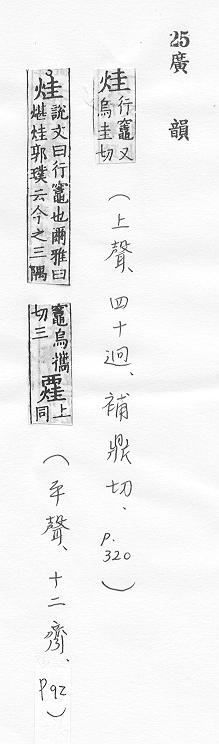 25廣韻
烓行竈又烏圭切(上聲、四十迥、補鼎切、p.320)
烓說文曰行竈也爾雅曰煁烓郭璞云今之三隅竈烏攜切三 上同(平聲、十二齊、p92)